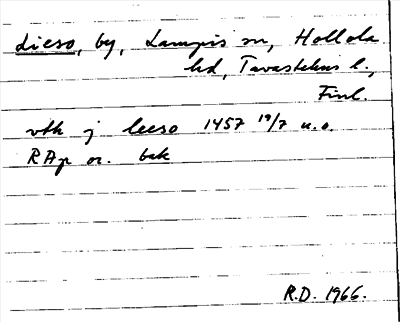 Lieso, by, Lampis sn, Hollola
hd, Tavastehus l.,
Finl.
vth j leeso 1457 19/7 u.o.
RAp or. bak
R.D. 1966.